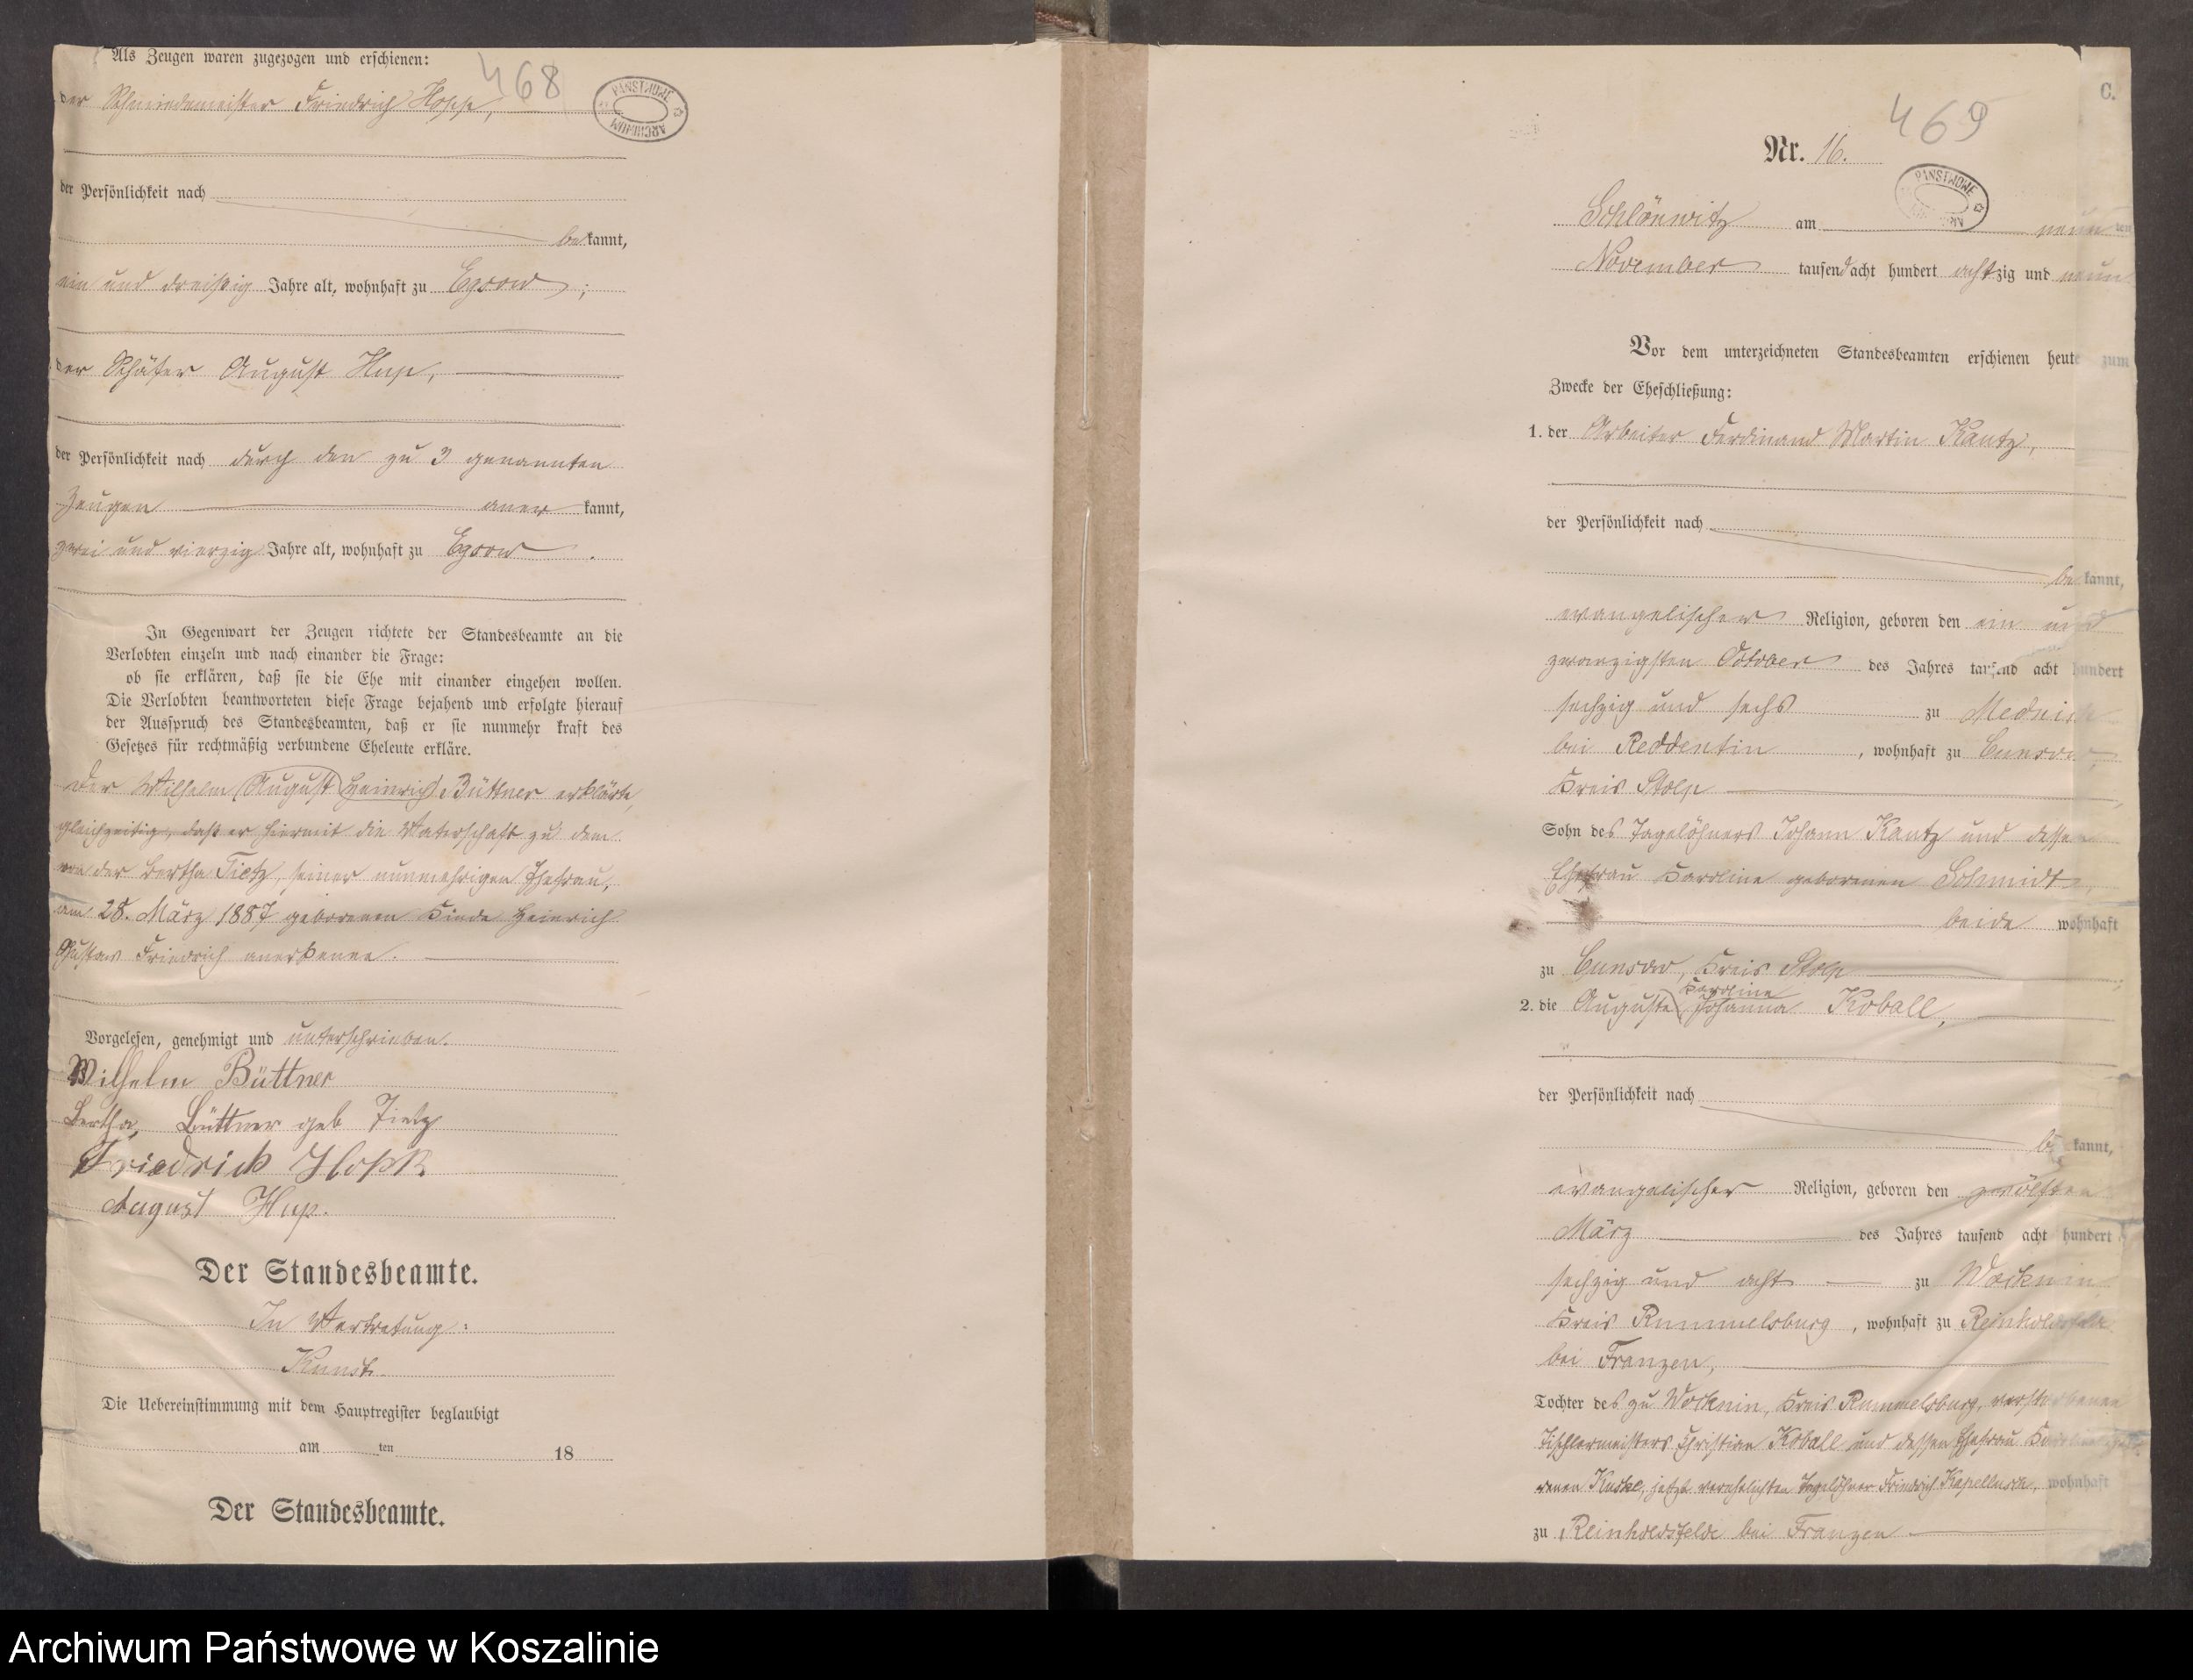 Als Zeugen waren zugezogen und erschienen:
468
PAŃSTWOWE ARCHIWUM
der Schmiedemeister Friedrich Hopp,
der Persönlichkeit nach
bekannt,
ein und dreißig Jahre alt, wohnhaft zu Egsow;
der Schäfer August Hup,
der Persönlichkeit nach durch den zu 3 genannten
Zeugen anerkannt,
zwei und vierzig Jahre alt, wohnhaft zu Egsow.
In Gegenwart der Zeugen richtete der Standesbeamte an die
Verlobten einzeln und nach einander die Frage:
ob sie erklären, daß sie die Ehe mit einander eingehen wollen.
Die Verlobten beantworteten diese Frage bejahend und erfolgte hierauf
der Ausspruch des Standesbeamten, daß er sie nunmehr kraft des
Gesetzes für rechtmäßig verbundene Eheleute erkläre.
Der Wilhelm August Heinrich Büttner erklärte,
gleichzeitig, daß er hiermit die Vaterschaft zu dem
von der Bertha Tietz, seiner nunmehrigen Ehefrau,
am 28. März 1887 geborenen Kinde Heinrich
Gustav Friedrich anerkenne.
Vorgelesen, genehmigt und unterschrieben.
Wilhelm Büttner
Bertha Büttner geb Tietz
Friedrich Hopp
August Hup.
Der Standesbeamte.
In Vertretung:
Kunst.
Die Uebereinstimmung mit dem Hauptregister beglaubigt
am ten 18
Der Standesbeamte.
C.
469
Nr. 16.
PAŃSTWOWE
Schlönwitz am neunten
November tausend acht hundert achtzig und neun
Vor dem unterzeichneten Standesbeamten erschienen heute zum
Zwecke der Eheschließung:
1. der Arbeiter Ferdinand Martin Kautz,
der Persönlichkeit nach
bekannt,
evangelischer Religion, geboren den ein und
zwanzigsten October des Jahres tausend acht hundert
sechzig und sechs zu
bei Reddentin, wohnhaft zu Cunsow,
Kreis Stolp
Sohn des Tagelöhners Johann Kautz und dessen
Ehefrau Karoline geborenen Schmidt,
beide wohnhaft
zu Cunsow, Kreis Stolp
Karoline
2. die Auguste Johanna Koball,
der Persönlichkeit nach
bekannt,
evangelischer Religion, geboren den zwölften
März des Jahres tausend acht hundert
sechzig und acht zu Wocknin
Kreis Rummelsburg, wohnhaft zu Reinholdsfelde
bei Franzen,
Tochter des zu Wocknin, Kreis Rummelsburg, verstorbenen
Tischlermeisters Christian Koball und dessen Ehefrau Karoline gebo-
renen Kuske, jetzt verehelichten Tagelöhner Friedrich wohnhaft
zu Reinholdsfelde bei Franzen
Archiwum Państwowe w Koszalinie